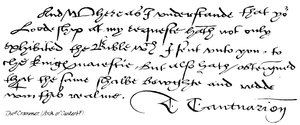 And Whereas I understande that yor
Lordeship at my requeste hath not only
exhibited the Bible wch I sent unto you, to
the Kings maiestie, but also hath obteigned
that the same shalbe bowghte and redde
within this realme.
T Cantuarien
Cranmer (Arch. of